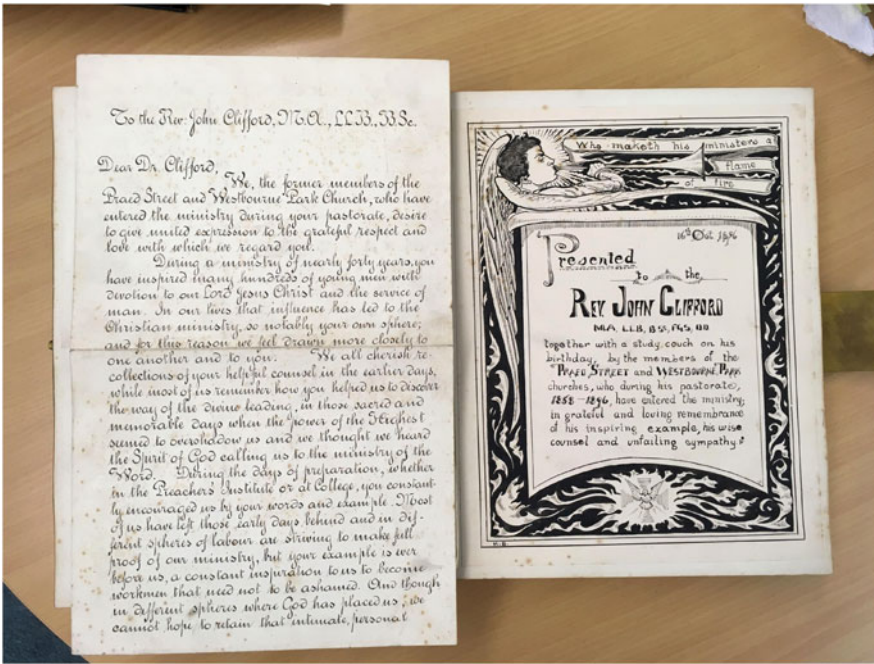 To the Rev: John Clifford, M.A., LL.B., B.Sc.
Dear Dr. Clifford,
We, the former members of the
Praed Street and Westbourne Park Church, who have
entered the ministry during your pastorate, desire
to give united expression to the grateful respect and
love with which we regard you.
During a ministry of nearly forty years, you
have inspired many hundreds of young men with
devotion to our Lord Jesus Christ and the service of
man. In our lives that influence has led to the
Christian ministry, so notably your own sphere;
and for this reason we feel drawn more closely to
one another and to you. We all cherish re-
collections of your helpful counsel in the earlier days,
while most of us remember how you helped us to discover
the way of the divine leading, in those sacred and
memorable days when the power of the Highest
seemed to overshadow us and we thought we heard
the Spirit of God calling us to the ministry of the
Word. During the days of preparation, whether
in the Preachers' Institute or at College, you constant-
ly encouraged us by your words and example. Most
of us have left those early days behind and in dif-
ferent spheres of labour are striving to make full
proof of our ministry, but your example is ever
before us, a constant inspiration to us to become
workmen that need not to be ashamed. And though
in different spheres where God has placed us, we
cannot hope to retain that intimate, personal
Who maketh his ministers a
flame
of fire
16th Oct 1896
Presented
to the
REV. JOHN CLIFFORD
M.A., LL.B, B.Sc, F.G.S, DD
together with a study couch on his
birthday, by the members of the
"PRAED STREET and WESTBOURNE PARK
churches, who during his pastorate,
1858-1896, have entered the ministry,
in grateful and loving remembrance
of his inspiring example, his wise
counsel and unfailing sympathy"